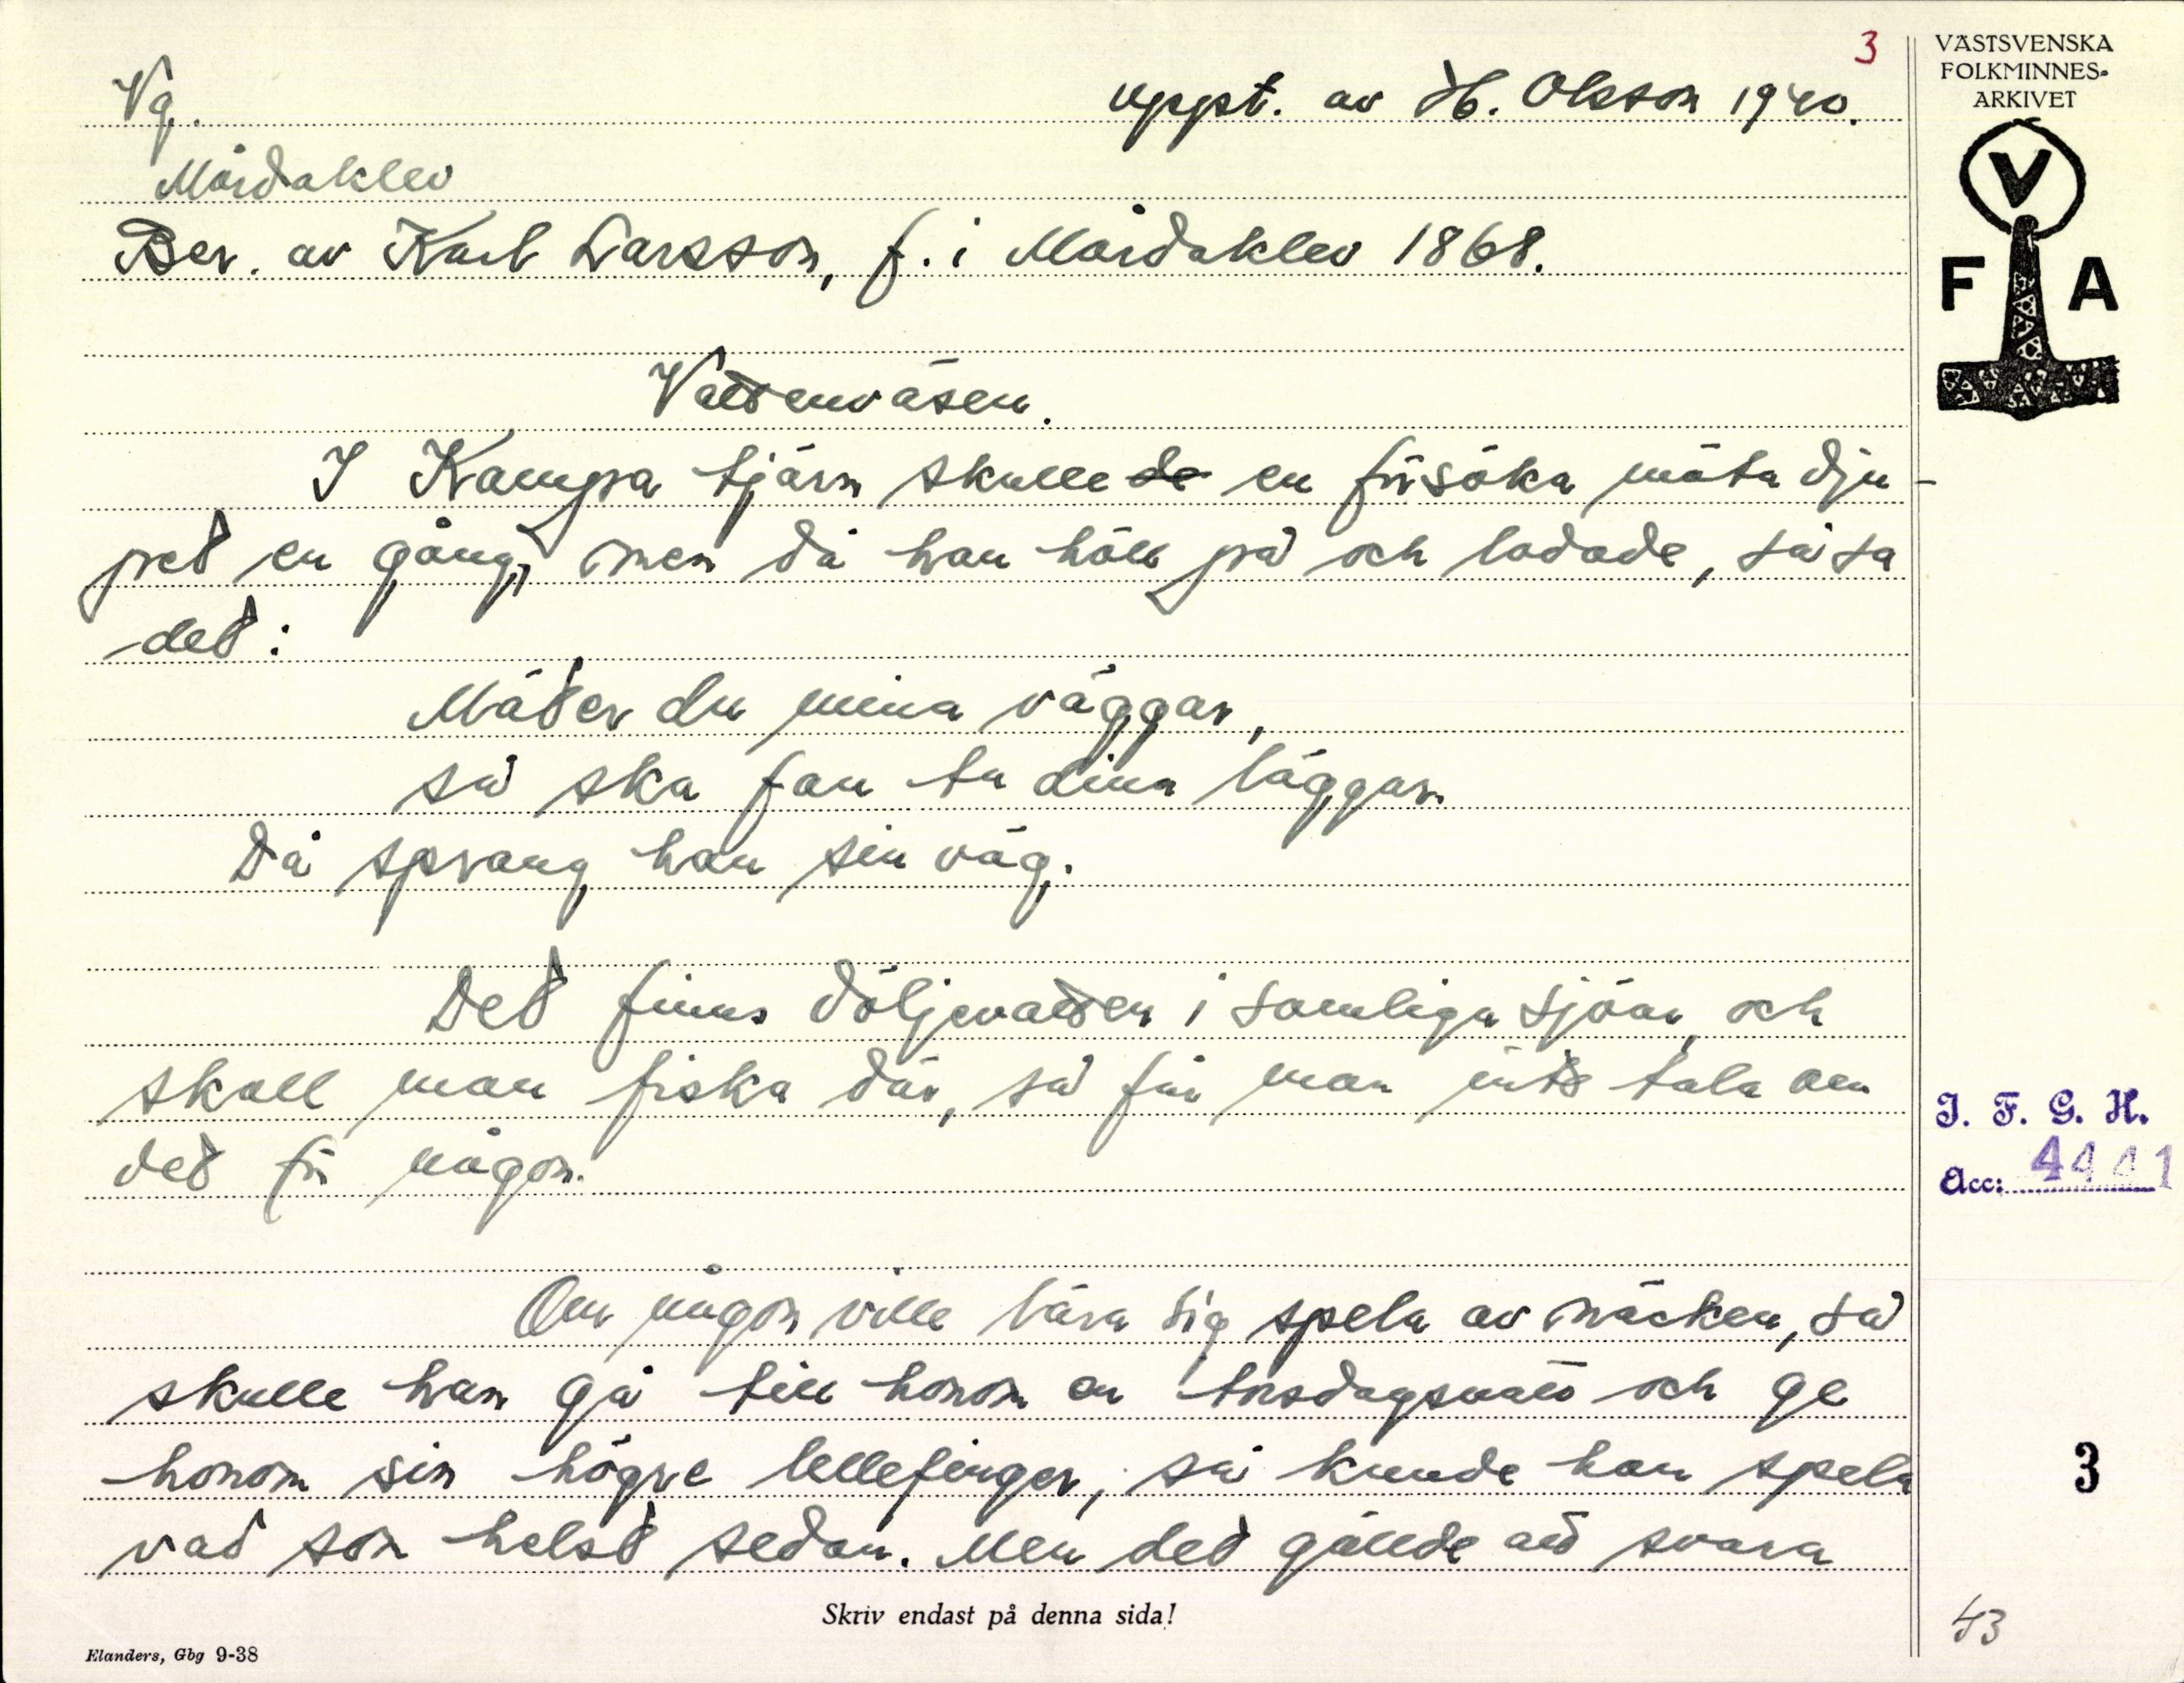 3
VÄSTSVENSKA
FOLKMINNES-
ARKIVET
V
F A
Vg.
uppt. av H. Olsson 1940.
Mårdaklev
Ber. av Karl Larsson, f. i Mårdaklev 1868.
Vattenväsen.
I Kampa tjärn skulle de en försöka mäta dju-
pet en gång, men då han höll på och lodade, så sa
det:
Mäter du mina väggar,
så ska fan ta dina läggar.
Då sprang han sin väg.
Det finns döljevatten i somliga sjöar, och
skall man fiska där, så får man inte tala om
det för någon.
Om någon ville lära sig spela av näcken, så
skulle han gå till honom en torsdagsnatt och ge
honom sin högre lellefinger, så kunde han spela
vad som helst sedan. Men det gällde att svara
I. F. G. H.
Acc: 4441
3
Skriv endast på denna sida!
43
Elanders, Gbg 9-38